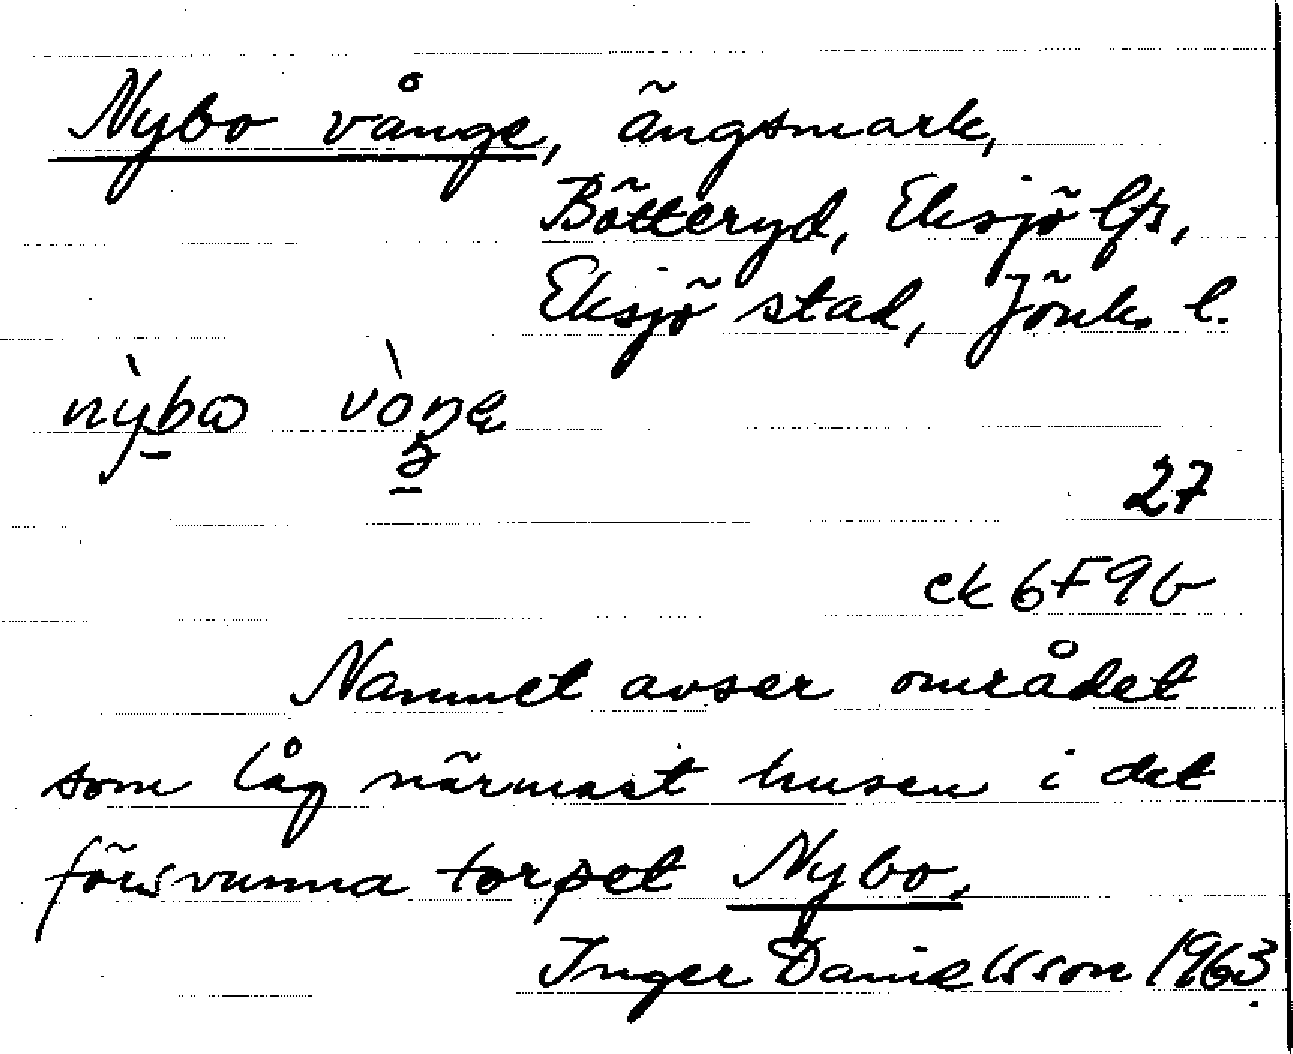 Nybo vånge, ängsmark,
Bötteryd, Eksjö lfs,
Eksjö stad, Jönk. l.
nỳbω
27
ek 6F9b
Namnet avser området
som låg närmast husen i det
försvunna torpet Nybo.
Inger Danielsson 1963